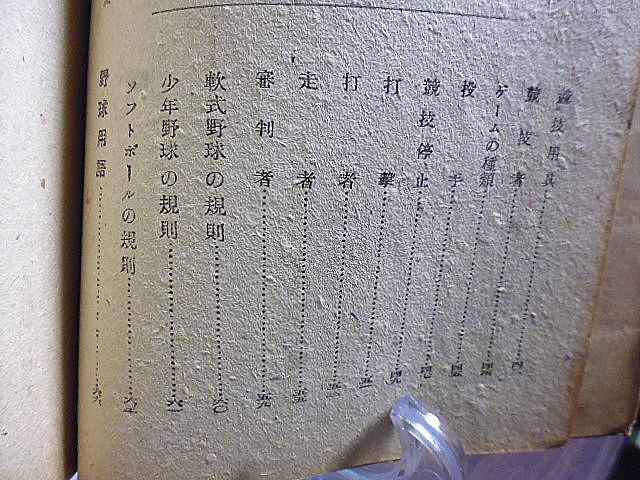 競技用具
競技者
ゲームの種類
投手
競技停止
打撃
打者
走者
審判者
軟式野球の規則……六〇
少年野球の規則……六一
ソフトボールの規則
野球用語